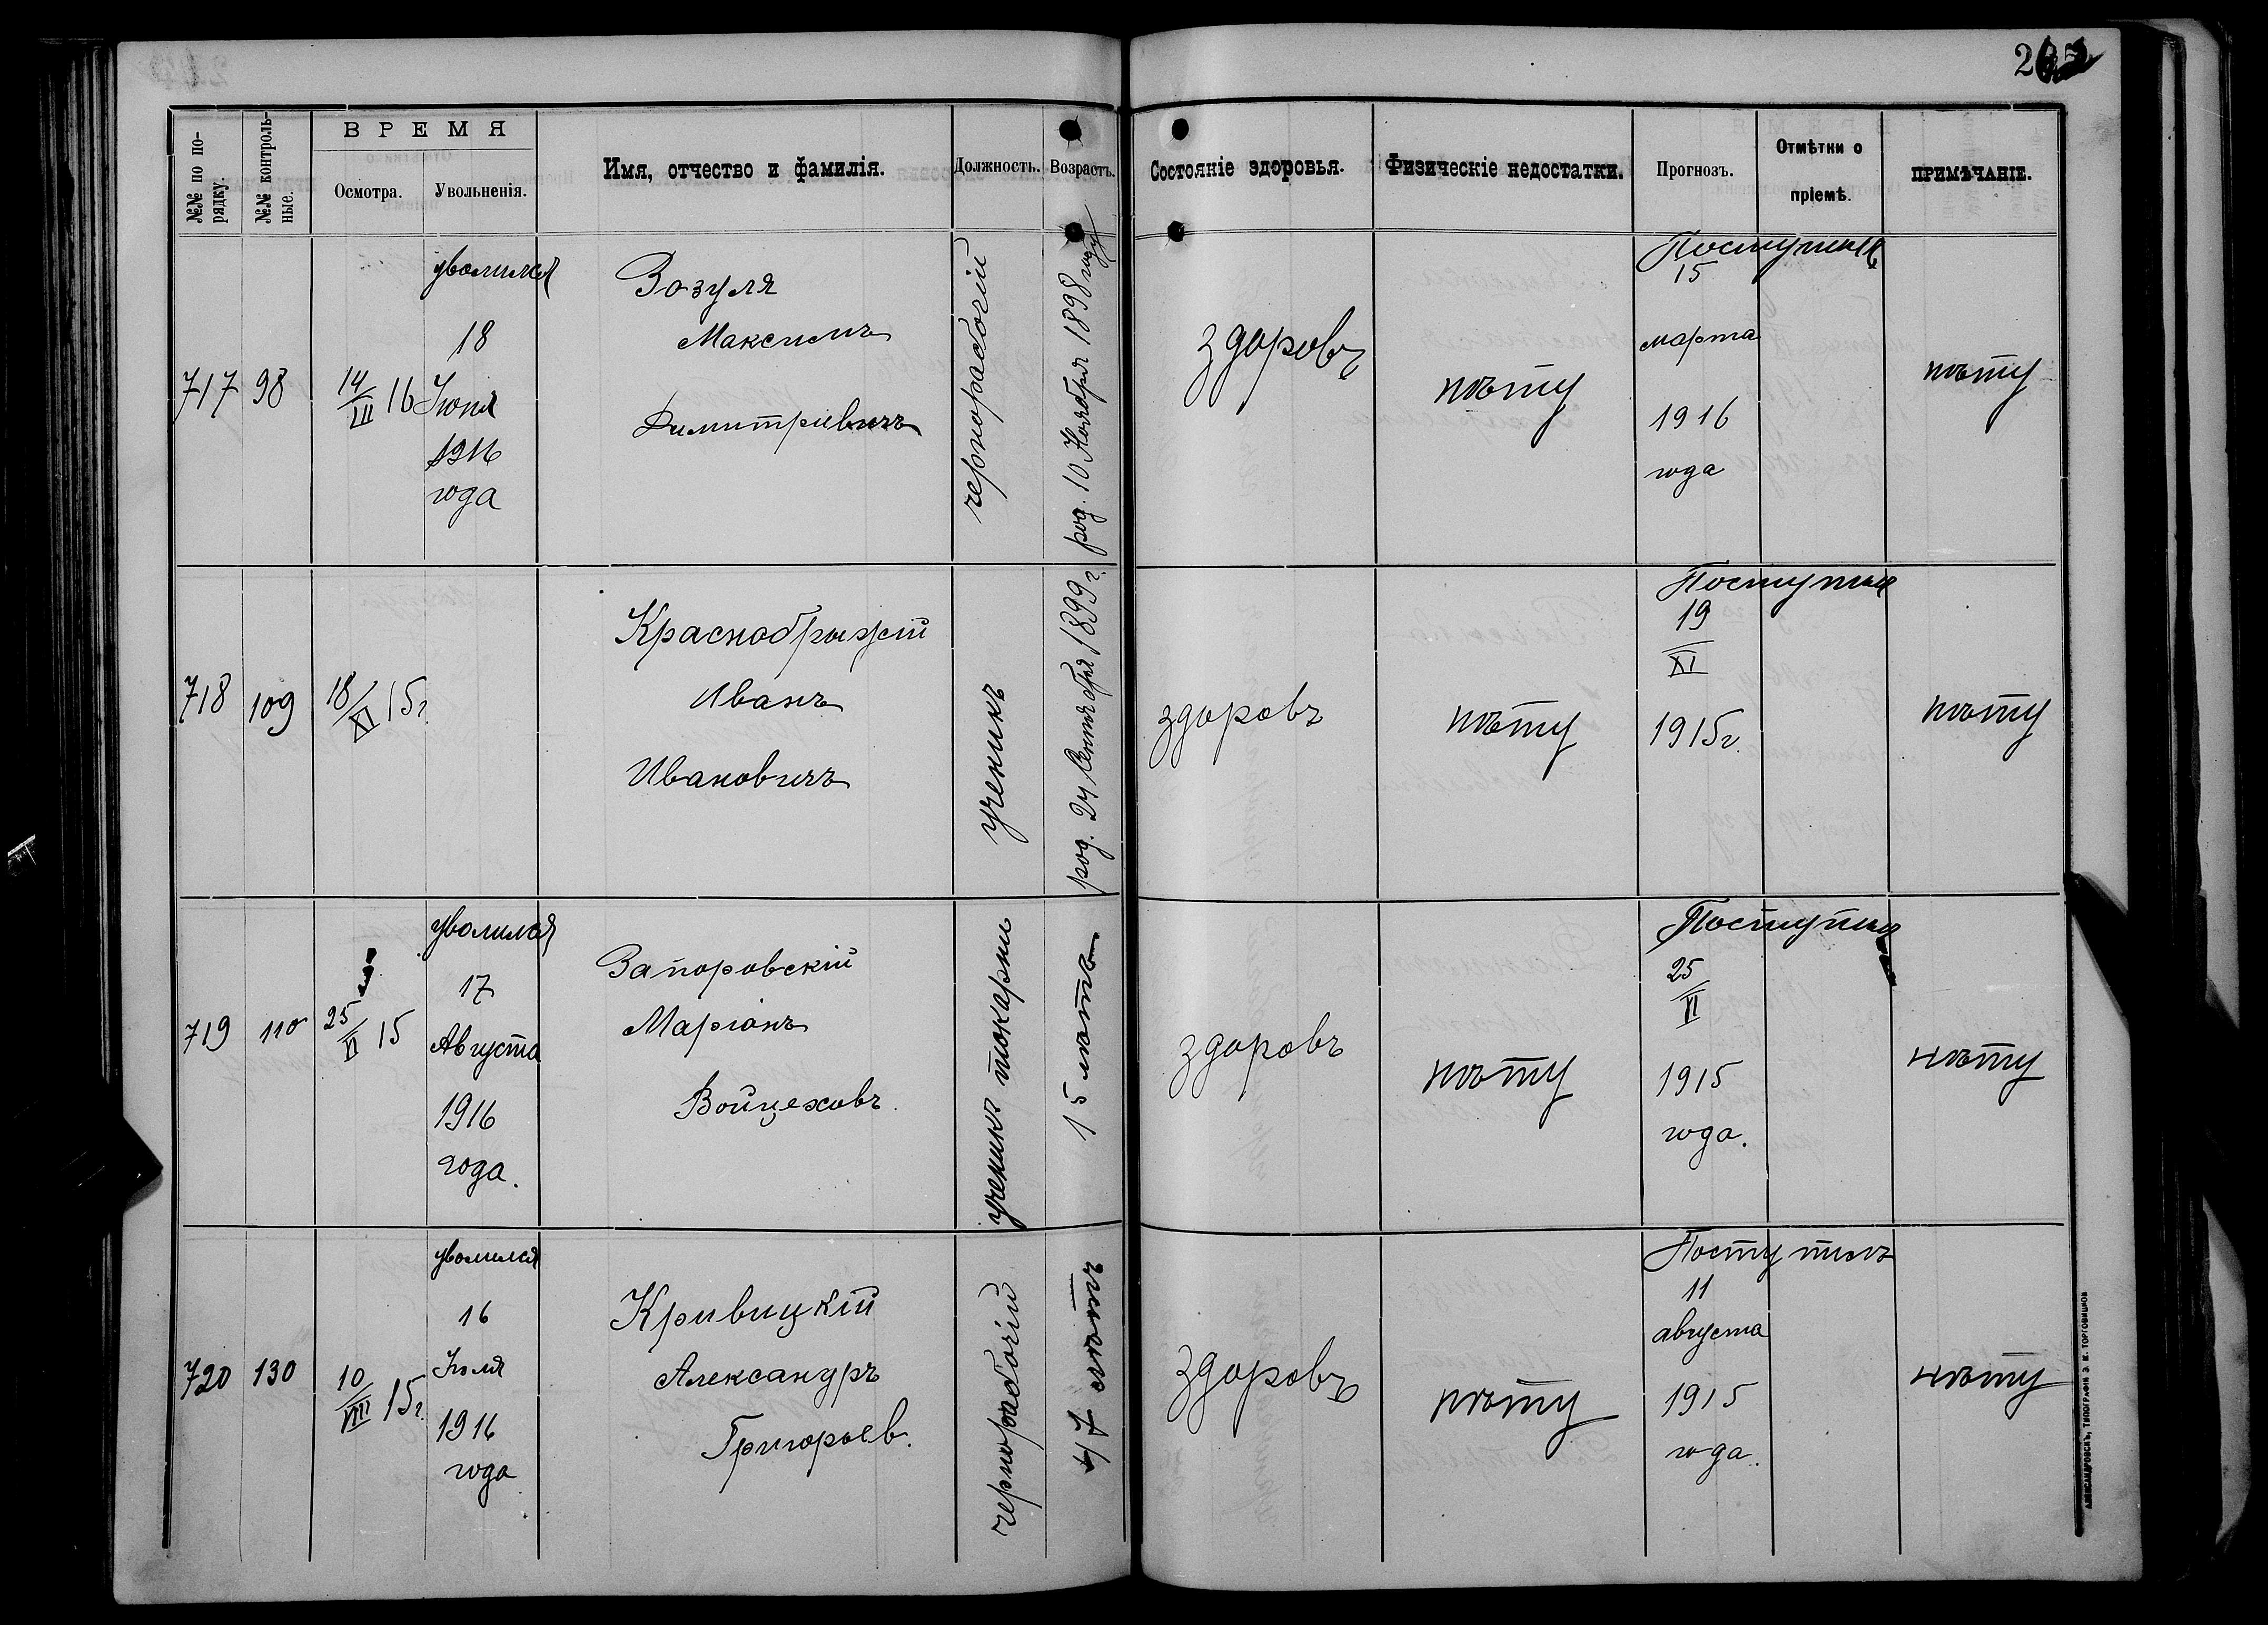 2
№№ по по-
рядку.
№№ контроль-
ные.
ВРЕМЯ
Осмотра.
Увольненія.
Имя, отчество и фамилія.
Должность.
Возрастъ.
Состояніе здоровья.
Физическіе недостатки.
Прогнозъ.
Отмѣтки о
пріемѣ.
ПРИМѢЧАНІЕ.
717
98
14/III 16
уволился
18
Июня
1916
года
Зозуля
Максимъ
Димитріевичъ
чернорабочій
род. 10 Ноября 1898 году
здоровъ
нѣту
Поступилъ
15
марта
1916
года
нѣту
718
109
18/XI 15г.
Краснобрыжій
Иванъ
Ивановичъ
ученикъ
род. 24 Сентября 1899 г.
здоровъ
нѣту
Поступил
19
XI
1915г.
нѣту
719
110
25/VI 15
уволился
17
Августа
1916
года.
Запоровскій
Маріанъ
Войцеховъ.
ученикъ токарни
15 лѣтъ
здоровъ
нѣту
Поступил
25
VI
1915
года.
нѣту
720
130
10/VIII 15г.
уволился
16
Июля
1916
года
Кривицкій
Александръ
Григорьев.
чернорабочій
47 лѣтъ
здоровъ
нѣту
Поступилъ
11
августа
1915
года.
нѣту
АЛЕКСАНДРОВСКЪ, ТИПОГРАФІЯ Э. М. ТОРГОВИЦКОВ